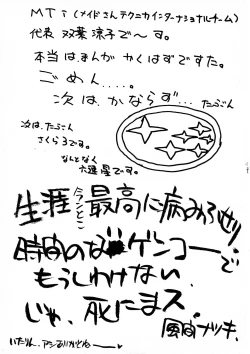 MTi (メイドさんテクニカインターナショナルチーム)
代表 双葉涼子で〜す。
本当は、まんが かくはずですた。
ごめん....。
次は、かならず… たぶん
次は、たぶん
さくら3です。
なんとなく
大連星です。
生涯 今んとこ 最高に病みぶせり
時間のな ゲンコーで
もうしわけない
じゃ、死にまス。
風間ナツキ.